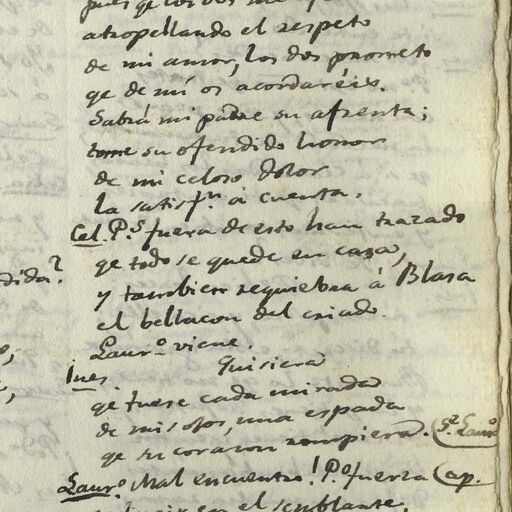 pues qe los dos
atropellando el respeto
de mi amor, los dos prometo
qe de mí os acordaréis.
Sabrá mi padre su afrenta;
tome su ofendido honor
de mi celoso dolor
la satisfn à cuenta.
Cel. Ps fuera de esto han trazado
qe todo se quede en casa,
dida?
y tambien requiebra à Blasa
el bellacon del criado.
Lauro viene.
Ines Quisiera
qe fuese cada mirada
de mis ojos, una espada
qe su corazon rompiera. (Se Lauro
Lauro Mal encuentro! Po fuerza (ap.
en el semblante.